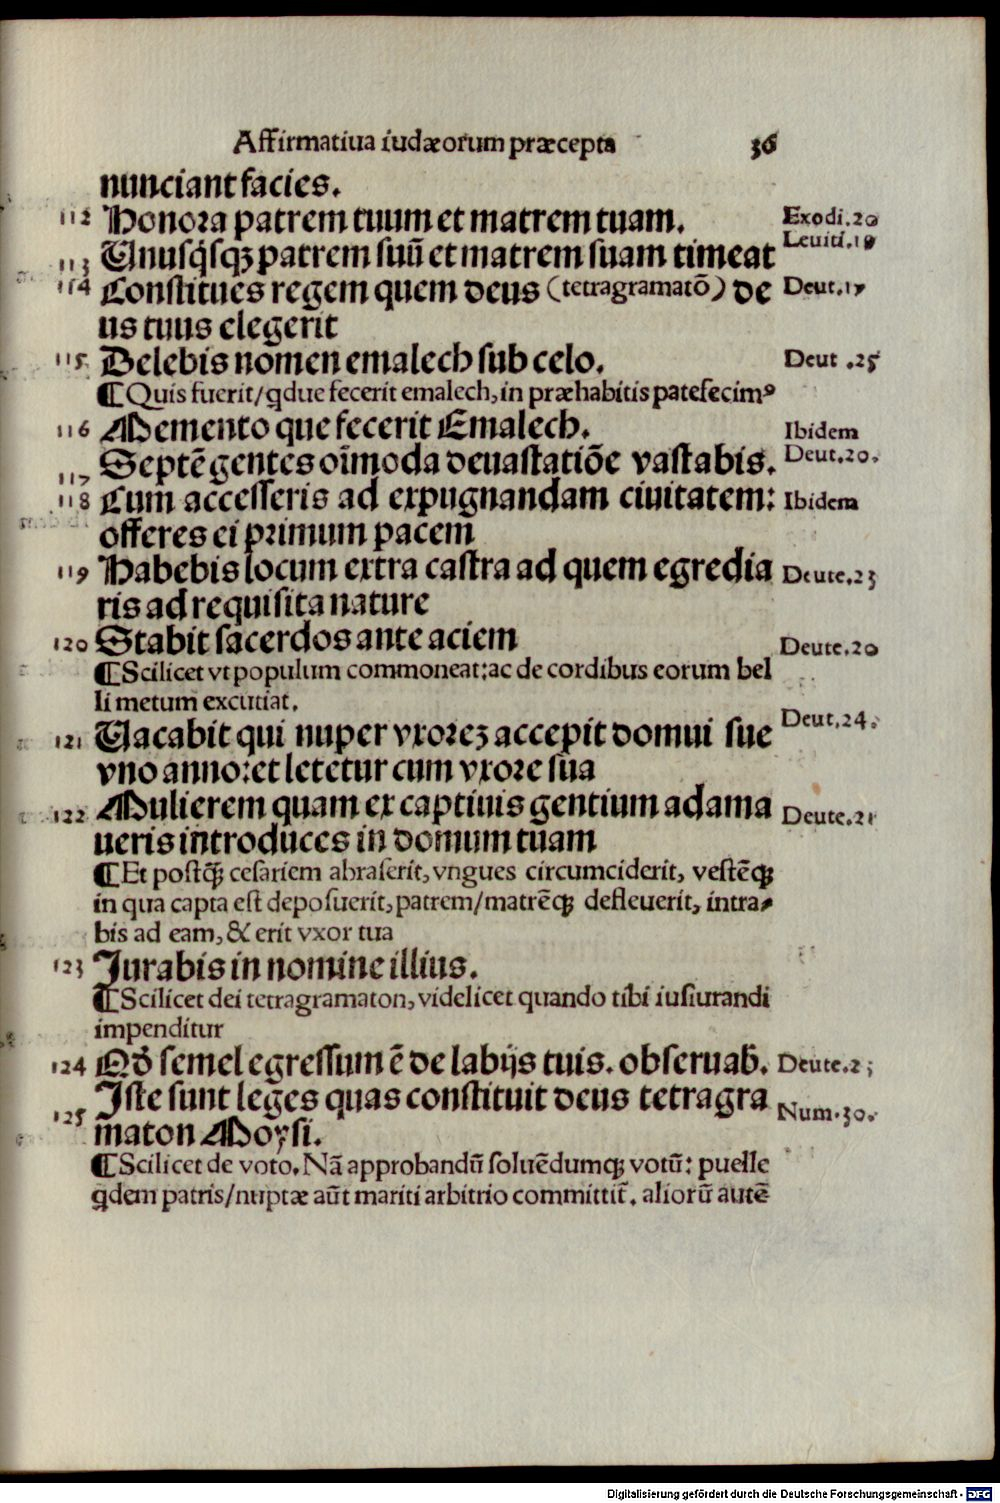 Affirmatiua iudæorum præcepta 36
nunciant facies.
112 Honora patrem tuum et matrem tuam. Exodi.20
113 Unusq̇sqȝ patrem suū et matrem suam timeat Leuiti.19
114 Constitues regem quem deus (tetragramatō) de Deut.17
us tuus elegerit
115 Delebis nomen emalech sub celo. Deut .25
¶Quis fuerit/qdue fecerit emalech, in præhabitis patefecimꝰ
116 Memento que fecerit Emalech. Ibidem
117 Septē gentes oīmoda deuastatiōe vastabis. Deut.20.
118 Cum accesseris ad expugnandam ciuitatem: Ibidem
offeres ei primum pacem
119 Habebis locum extra castra ad quem egredia Deute.23
ris ad requisita nature
120 Stabit sacerdos ante aciem Deute.20
¶Scilicet vt populum commoneat:ac de cordibus eorum bel
li metum excutiat.
121 Uacabit qui nuper vxoreȝ accepit domui sue Deut.24.
vno anno:et letetur cum vxore sua
122 Mulierem quam ex captiuis gentium adama Deute.21
ueris introduces in domum tuam
¶Et postq̃ȝ cesariem abraserit, vngues circumciderit, vestēqȝ
in qua capta est deposuerit, patrem/matrēqȝ defleuerit, intra⸗
bis ad eam, & erit vxor tua
123 Jurabis in nomine illius.
¶Scilicet dei tetragramaton, videlicet quando tibi iusiurandi
impenditur
124 Qđ semel egressum ē de labijs tuis. obseruab̃. Deute.23
125 Iste sunt leges quas constituit deus tetragra Num.30.
maton Moysi.
¶Scilicet de voto. Nā approbandū soluēdumqȝ votū: puelle
qdem patris/nuptæ aūt mariti arbitrio committit̃. aliorū autē
Digitalisierung gefördert durch die Deutsche Forschungsgemeinschaft - DFG